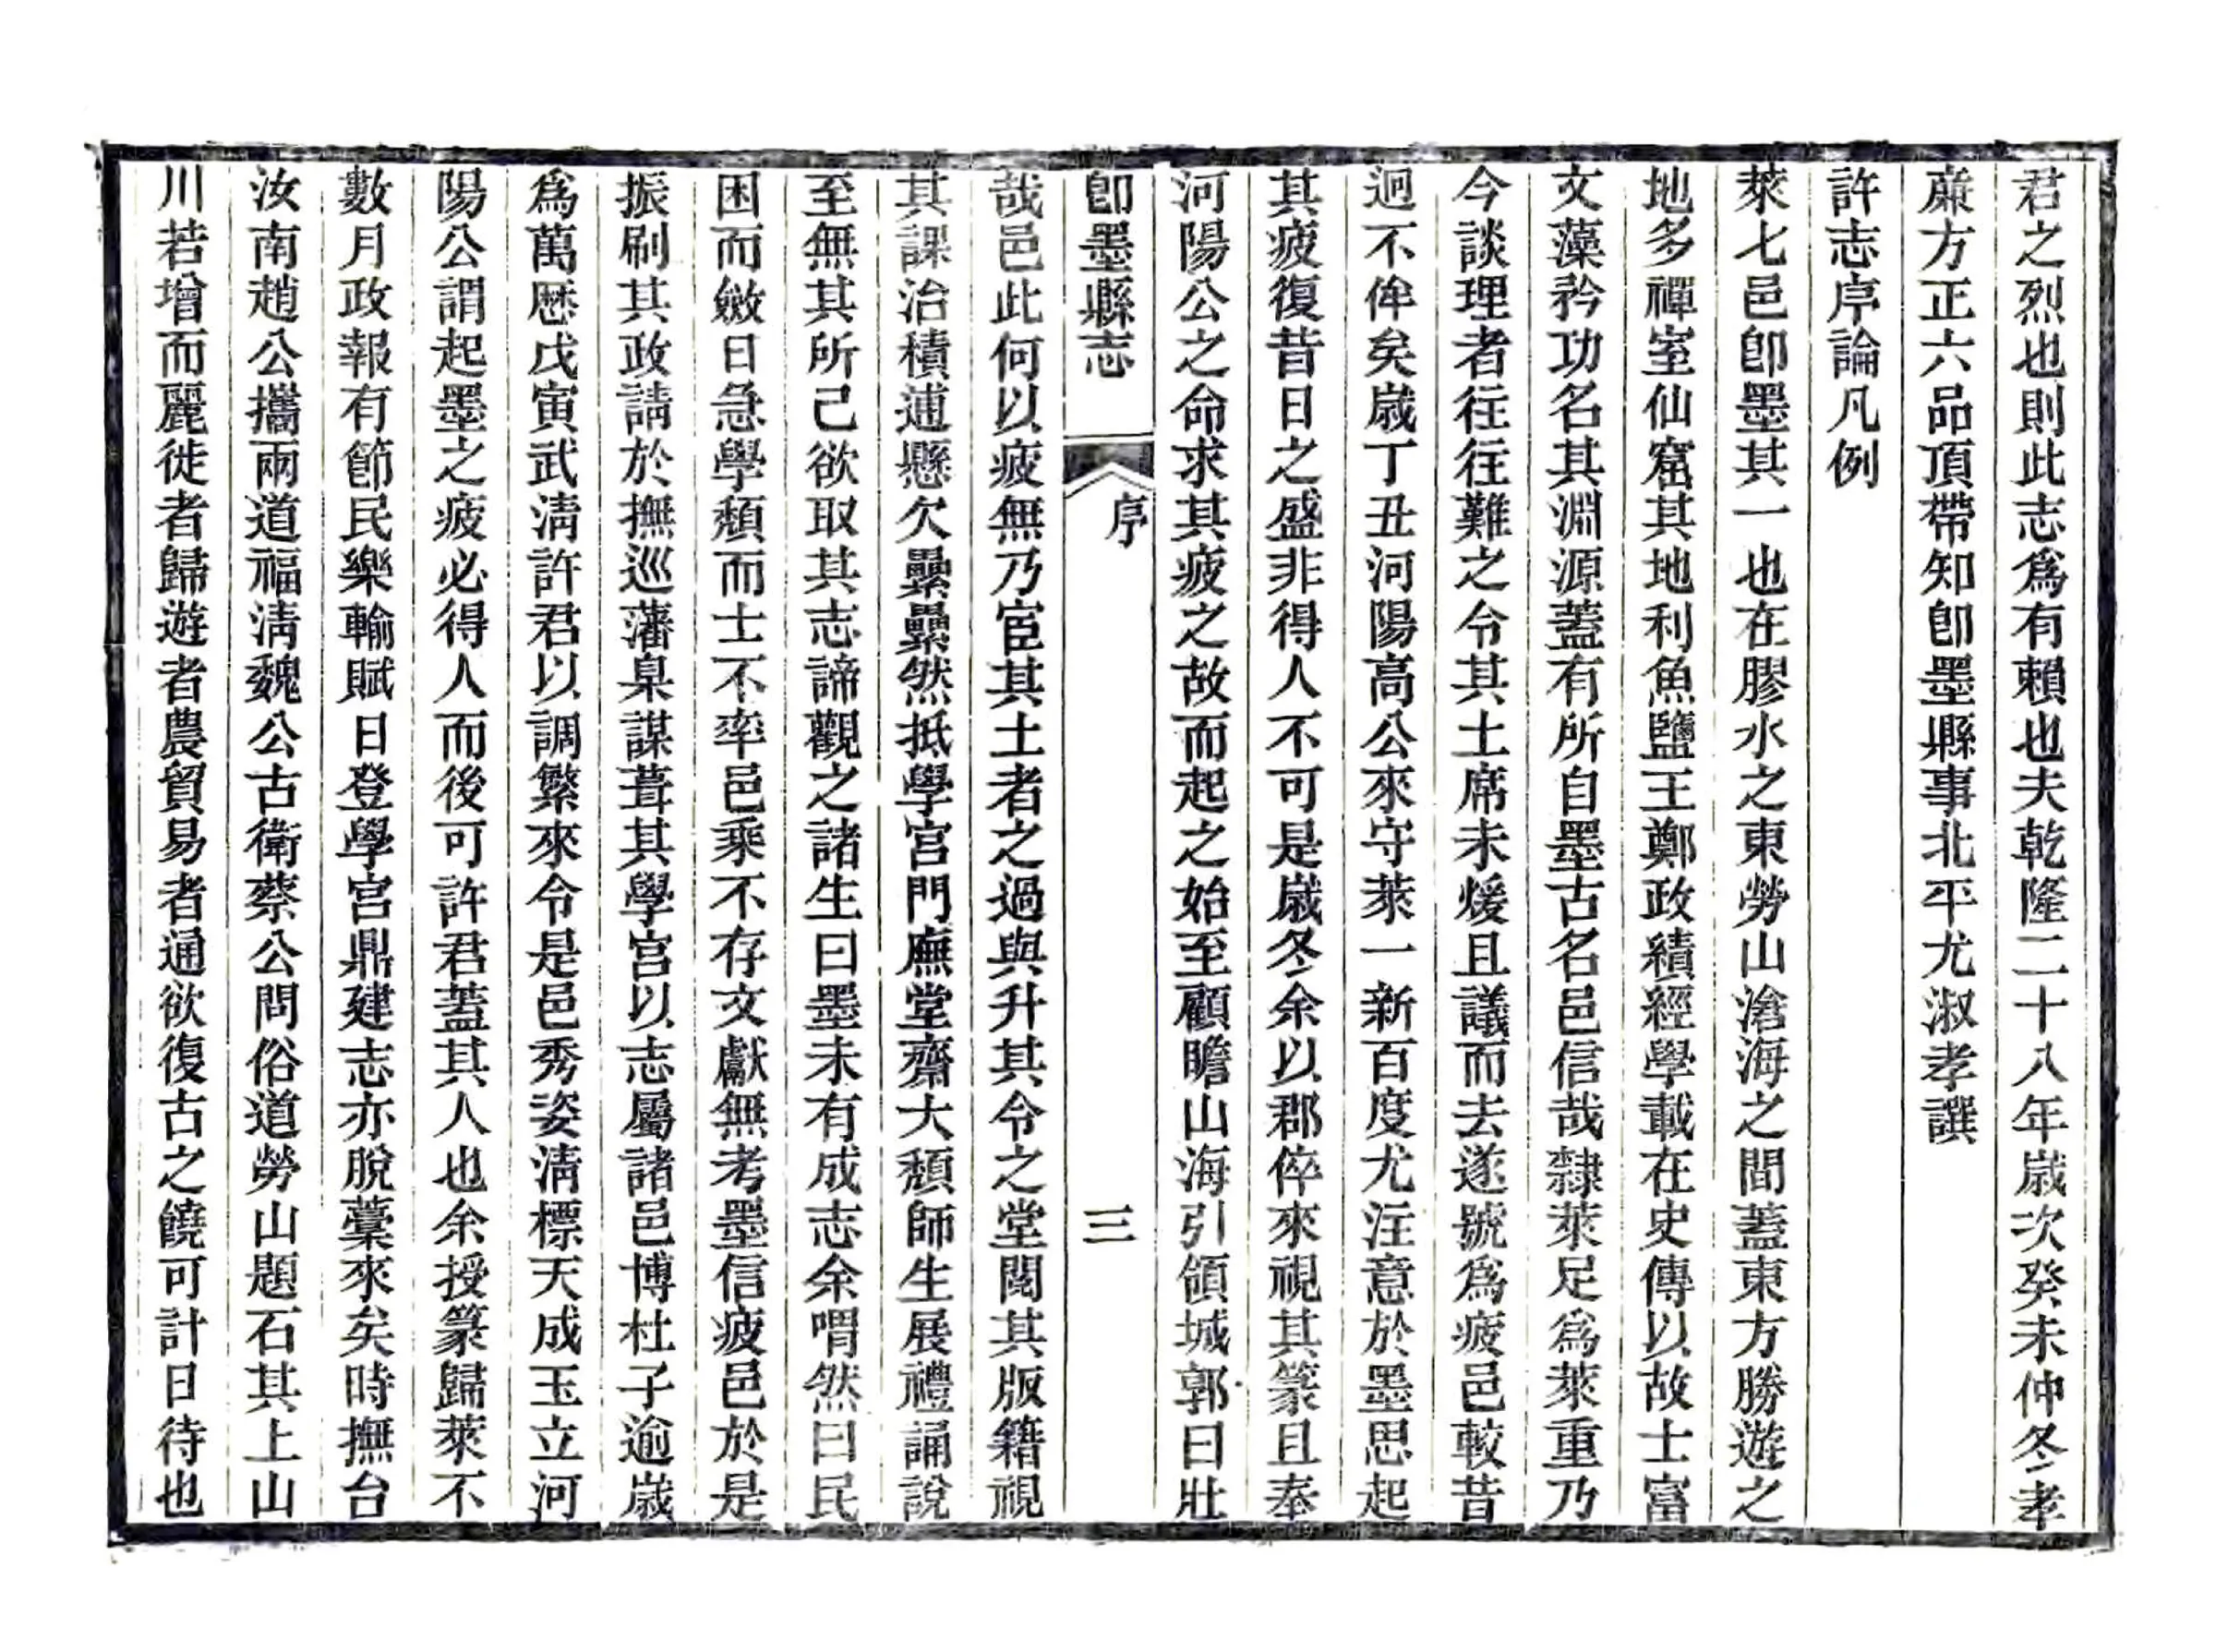 君之烈也則此志爲有賴也夫乾隆二十八年歲次癸未仲冬孝
廉方正六品頂帶知卽墨縣事北平尤淑孝譔
許志序論凡例
萊七邑卽墨其一也在膠水之東勞山滄海之間蓋東方勝遊之
地多禪室仙窟其地利魚鹽王鄭政績經學載在史傳以故士富
文藻矜功名其淵源蓋有所自墨古名邑信哉隸萊足爲萊重乃
今談理者往往難之令其土席未煖且議而去遂號爲疲邑較昔
逈不侔矣歲丁丑河陽高公來守萊一新百度尤注意於墨思起
其疲復昔日之盛非得人不可是歲冬余以郡倅來視其篆且奉
河陽公之命求其疲之故而起之始至顧瞻山海引領城郭曰壯
卽墨縣志
序
三
哉邑此何以疲無乃宦其土者之過與升其令之堂閱其版籍視
其課治積逋懸欠纍纍然抵學宮門廡堂齋大頹師生展禮誦說
至無其所己欲取其志諦觀之諸生曰墨未有成志余喟然曰民
困而斂日急學頹而士不率邑乘不存文獻無考墨信疲邑於是
振刷其政請於撫巡藩臬謀葺其學宮以志屬諸邑博杜子逾歲
爲萬歷戊寅武淸許君以調繁來令是邑秀姿淸標天成玉立河
陽公謂起墨之疲必得人而後可許君蓋其人也余授篆歸萊不
數月政報有節民樂輸賦日登學宮鼎建志亦脫藳來矣時撫台
汝南趙公攜兩道福淸魏公古衛蔡公問俗道勞山題石其上山
川若增而麗徙者歸遊者農貿易者通欲復古之饒可計日待也